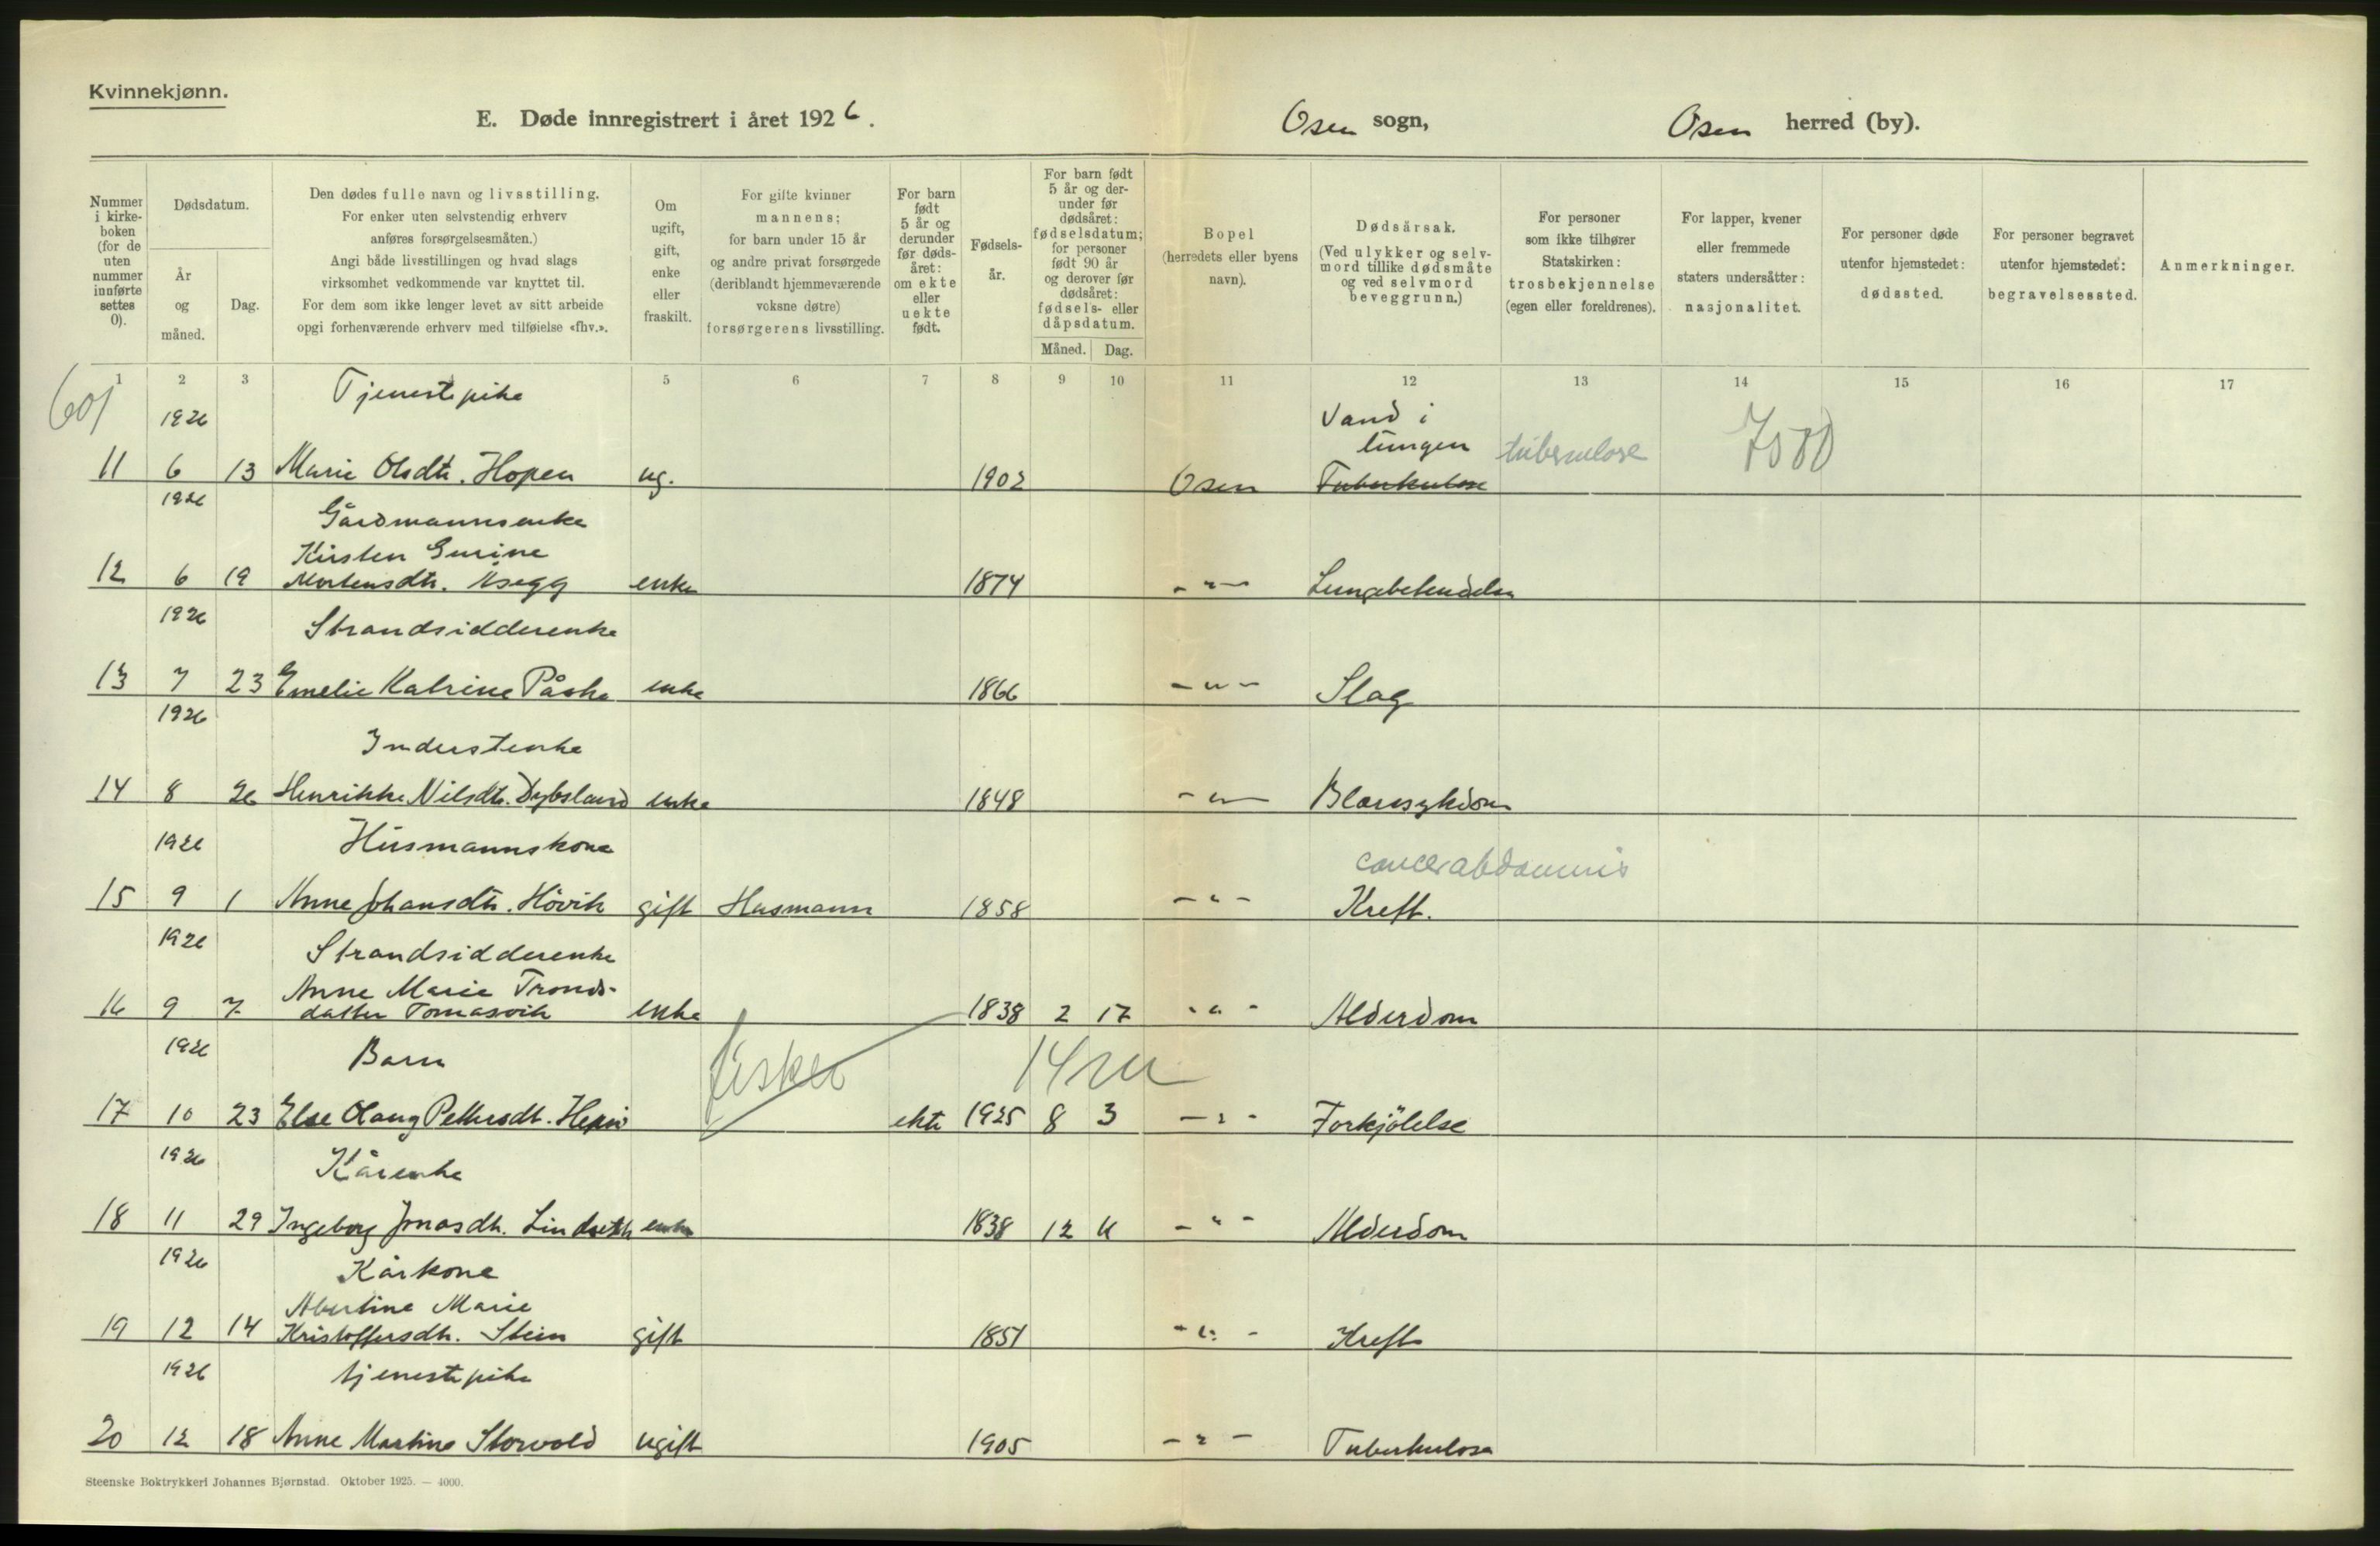 Kvinnekjønn.
E. Døde innregistrert i året 1926.
Osen sogn,
Osen herred (by).
Nummer i kirke-boken (for de uten nummer innførte settes 0).
Dødsdatum.
År og måned.
Dag.
Den dødes fulle navn og livsstilling.
For enker uten selvstendig erhverv
anføres forsørgelsesmåten.)
Angi både livsstillingen og hvad slags
virksomhet vedkommende var knyttet til.
For dem som ikke lenger levet av sitt arbeide
opgi forhenværende erhverv med tilføielse «fhv.».
Om ugift, gift, enke eller fraskilt.
For gifte kvinner
mannens;
for barn under 15 år
og andre privat forsørgede
(deriblandt hjemmeværende
voksne døtre)
forsørgerens livsstilling.
For barn født 5 år og derunder før døds-året: om ekte eller uekte født.
Fødsels-år.
For barn født 5 år og der-under før dødsåret: fødselsdatum; for personer født 90 år og derover før dødsåret: fødsels- eller dåpsdatum.
Måned. Dag.
Bopel
(herredets eller byens
navn).
Dødsårsak.
(Ved ulykker og selv-
mord tillike dødsmåte
og ved selvmord
beveggrunn.)
For personer
som ikke tilhører
Statskirken:
trosbekjennelse
(egen eller foreldrenes).
For lapper, kvener
eller fremmede
staters undersåtter:
nasjonalitet.
For personer døde
utenfor hjemstedet:
dødssted.
For personer begravet
utenfor hjemstedet:
begravelsessted.
Anmerkninger.
1 2 3 5 6 7 8 9 10 11 12 13 14 15 16 17
601
1926 Tjenestepike Vand i
lungen tuberculose
11 6 13 Marie Olsdtr. Hopen ug. 1902 Osen Tuberkulose
1926 Gårdmannsenke
Kirsten Gurine
12 6 19 Mortensdtr. Åsegg enke 1874 - " - Lungebetendelse
1926 Strandsidderenke
13 7 23 Emelie Katrine Påske enke 1866 - " - Slag
1926 Inderstenke
14 8 26 Henrikke Nilsdtr. Dybsland enke 1848 - " - Blæresykdom
1926 Husmannskone cancer abdominis
15 9 1 Anne Johansdtr. Høvik gift Husmann 1858 - " - Kreft.
1926 Strandsidderenke
Anne Marie Tronds-
16 9 7 datter Tomasvik enke 1838 2 17 - " - Alderdom
1926 Barn fisker 14 m
17 10 23 Else Olaug Pettersdt. ekte 1925 8 3 - " - Forkjølelse
1926 Kårenke
18 11 29 Ingeborg Jonasdtr. Lindseth enke 1838 12 - " - Alderdom
1926 Kårkone
Albertine Marie
19 12 14 Kristoffersdtr. Stein gift 1851 - " - Kreft
1926 tjenestepike
20 12 18 Anne Martine Storvold ugift 1905 - " - Tuberkulose
Steenske Boktrykkeri Johannes Bjørnstad. Oktober 1925. — 4000.